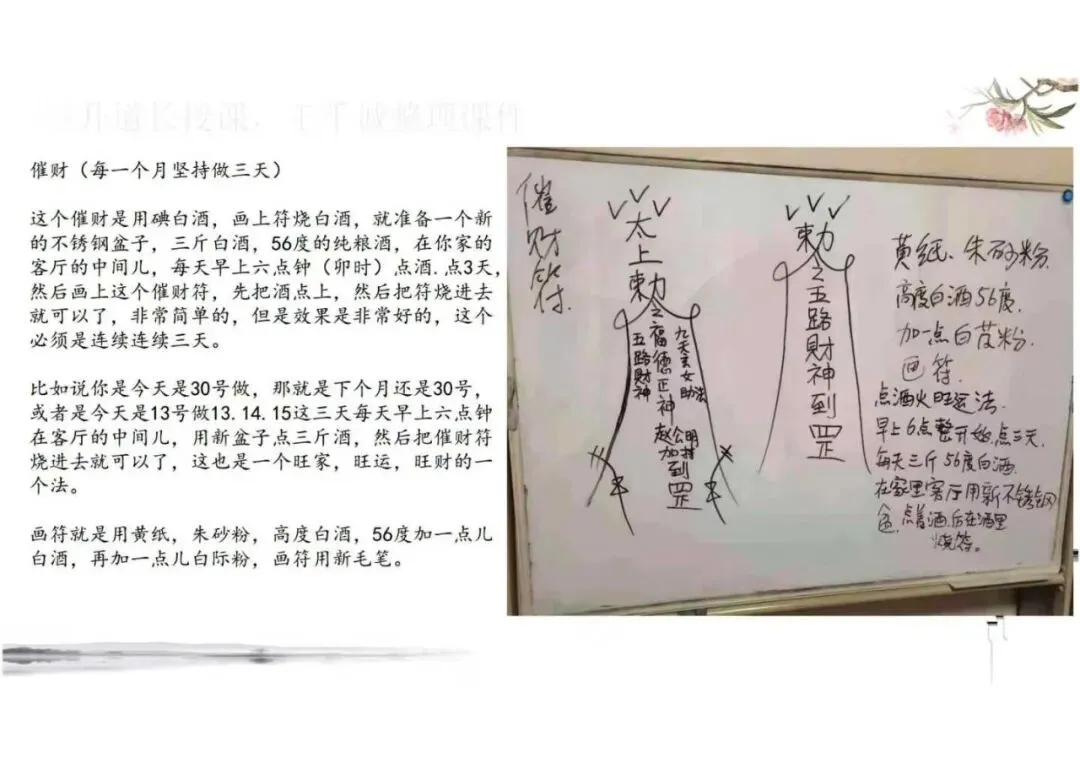 催财（每一个月坚持做三天）
这个催财是用碘白酒，画上符烧白酒，就准备一个新
的不锈钢盆子，三斤白酒，56度的纯粮酒，在你家的
客厅的中间儿，每天早上六点钟（卯时）点酒.点3天，
然后画上这个催财符，先把酒点上，然后把符烧进去
就可以了，非常简单的，但是效果是非常好的，这个
必须是连续连续三天。
比如说你是今天是30号做，那就是下个月还是30号，
或者是今天是13号做13.14.15这三天每天早上六点钟
在客厅的中间儿，用新盆子点三斤酒，然后把催财符
烧进去就可以了，这也是一个旺家，旺运，旺财的一
个法。
画符就是用黄纸，朱砂粉，高度白酒，56度加一点儿
白酒，再加一点儿白际粉，画符用新毛笔。
催财符.
太上敕令
福德正神
五路財神
九天玄女助法
赵公明
加持
到罡
敕令
五路財神到罡
黄纸、朱砂粉.
高度白酒56度.
加一点白芨粉.
画符.
点酒火旺运法.
早上6点整开始,点三天.
每天三斤56度白酒.
在家里客厅用新不锈钢
盆.点着酒.后在酒里
烧符。